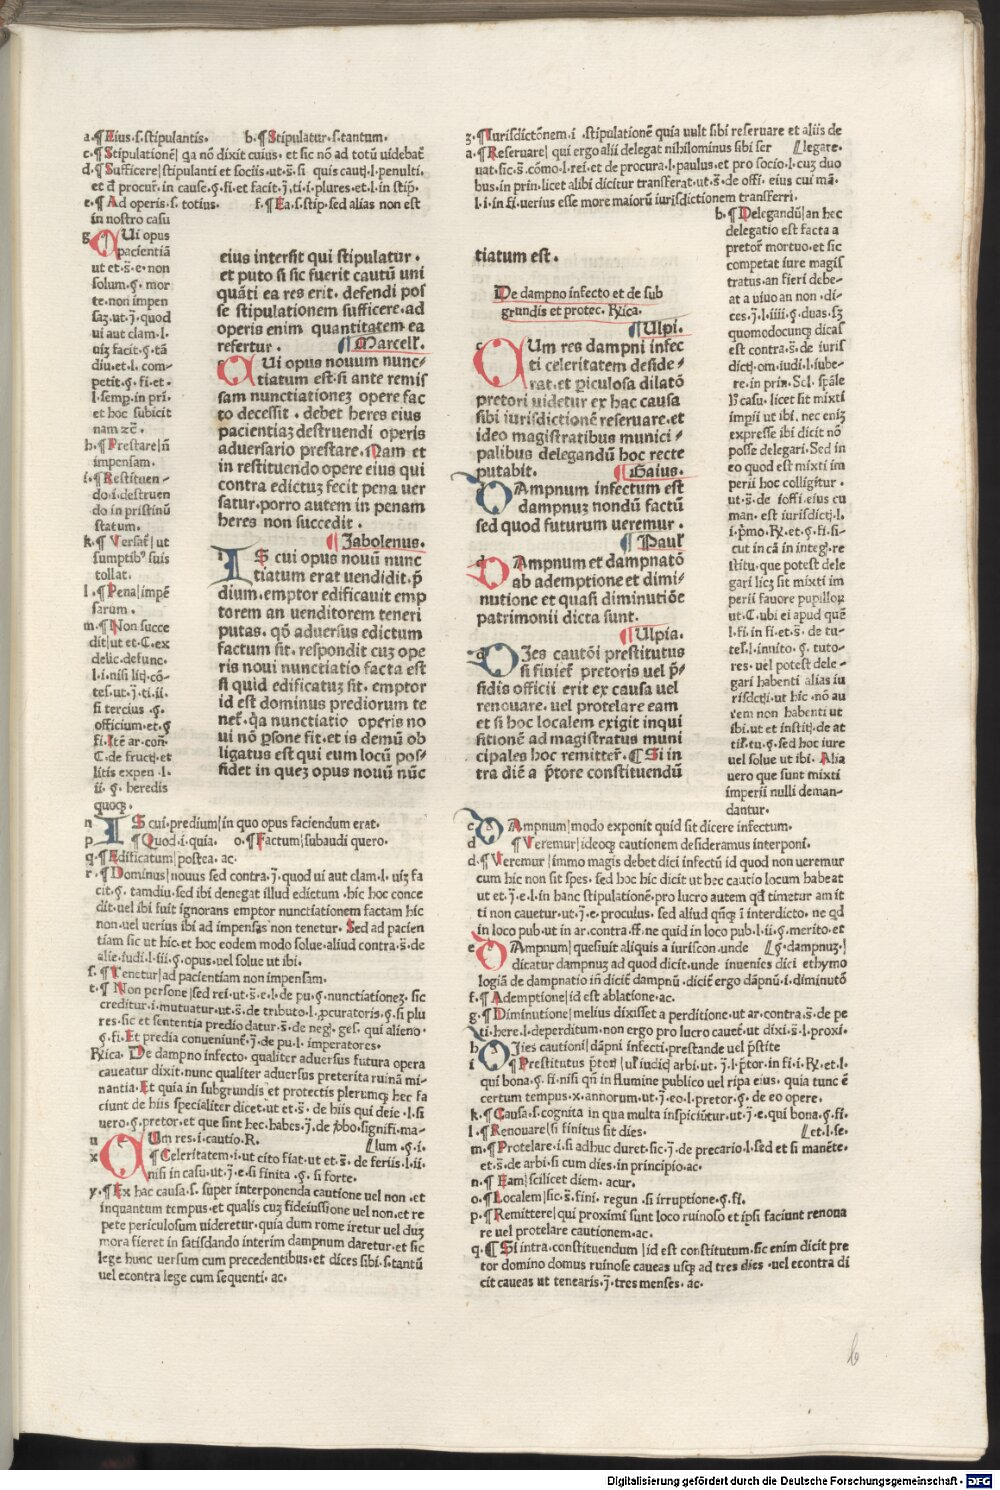 a.¶Eius.s.stipulantis. b.¶Stipulatur.s.tantum.
c.¶Stipulationē|qa nō dixit cuius.et sic nō ad totū uidebat̄
d.¶Sufficere|stipulanti et sociis.ut.s̄.si quis cautȷ.l.penulti.
et đ procur̄.in cause.ꝯ.fi.et facit.j̄.ti.i.plures.et.l.in stip̄.
e.¶Ad operis.s.totius. f.¶Ea.s.stip.sed alias non est
in nostro casu
g QUi opus
pacientiā
ut et.s̄.e.non
solum.ꝯ.mor
te.non impen
saȝ.ut.j̄.quod
ui aut clam.l.
uiȝ facit.ꝯ.tā
diu.et.l.com-
petit.ꝯ.fi.et.
l.semp.in pri.
et hoc subicit
nam ⁊c̄.
h.¶Prestare|n̄
impensam.
i.¶Restituen-
do.i.destruen
do in pristinū
statum.
k.¶Versat̄|ut
sumptib⁹ suis
tollat.
l.¶Pena|impē
sarum.
m.¶Non succe
dit|ut et.C.ex
delic.defunc.
l.i.nisi litȷ.cō-
tes.ut.j̄.ti.ii.
si tercius.ꝯ.
officium.et.ꝯ
fi.Itē ar.con̄.
C.de fructȷ.et
litis expen.l.
ii.ꝯ.heredis
quoqȝ.
eius intersit qui stipulatur.
et puto si sic fuerit cautū uni
quāti ea res erit. defendi pos
se stipulationem sufficere.ad
operis enim quantitatem ea
refertur. ¶Marcell̄.
QUi opus nouum nunc-
tiatum est.si ante remis
sam nunctiationeȝ opere fac
to decessit. debet heres eius
pacientiaȝ destruendi operis
aduersario prestare.Nam et
in restituendo opere eius qui
contra edictuȝ fecit pena uer
satur.porro autem in penam
heres non succedit.
¶Iabolenus.
IS cui opus nouū nunc
tiatum erat uendidit.p̄
dium.emptor edificauit emp
torem an uenditorem teneri
putas. qō aduersus edictum
factum sit.respondit cuȝ ope
ris noui nunctiatio facta est
si quid edificatuȝ sit. emptor
id est dominus prediorum te
net̄.qa nunctiatio operis no
ui nō psone fit.et is demū ob
ligatus est qui eum locū pos-
sidet in queȝ opus nouū nūc
n IS cui.predium|in quo opus faciendum erat.
p ¶Quod.i.quia. o.¶Factum|subaudi quero.
q.¶Edificatum|postea.ac.
r.¶Dominus|nouus sed contra.j̄.quod ui aut clam.l.uiȝ fa
cit.ꝯ.tamdiu.sed ibi denegat illud edictum.hic hoc conce
dit.uel ibi fuit ignorans emptor nunctiationem factam hic
non.uel uerius ibi ad impensas non tenetur.Sed ad pacien
tiam sic ut hic.et hoc eodem modo solue.aliud contra.s̄.de
alie.iudi.l.iii.ꝯ.opus.uel solue ut ibi.
s.¶Tenetur|ad pacientiam non impensam.
t.¶Non persone|sed rei.ut.s̄.e.l.de pu.ꝯ.nunctiationeȝ.sic
creditur.i.mutuatur.ut.s̄.de tributo.l.ꝓcuratoris.ꝯ.si plu
res.sic et sententia predio datur.s̄.de neg.ges.qui alieno.
ꝯ.fi.Et predia conueniunt̄.j̄.de pu.l.imperatores.
Rȝica. De dampno infecto.qualiter aduersus futura opera
caueatur dixit.nunc qualiter aduersus preterita ruinā mi-
nantia.Et quia in subgrundis et protectis plerumqȝ hec fa
ciunt de hiis specialiter dicet.ut et.s̄.de hiis qui deie.l.si
uero.ꝯ.pretor.et que sint hec.habes.j̄.de ꝓbo.signifi.ma-
u CUm res.i.cautio.R. lum.ꝯ.i.
x ¶Celeritatem.i.ut cito fiat.ut et.s̄.de feriis.l.ii.
nisi in casu.ut.j̄.e.si finita.ꝯ.si forte.
y.¶Ex hac causa.s.super interponenda cautione uel non.et
inquantum tempus.et qualis cuȝ fideiussione uel non.et re
pete periculosum uideretur.quia dum rome iretur uel duȝ
mora fieret in satisdando interim dampnum daretur.et sic
lege hunc uersum cum precedentibus.et dices sibi.s.tantū
uel econtra lege cum sequenti.ac.
z.¶Iurisdictōnem.i.stipulationē quia uult sibi reseruare et aliis de
a.¶Reseruare|qui ergo alii delegat nihilominus sibi ser legare.
uat.sic.s̄.cōmo.l.rei.et de procura.l.paulus.et pro socio.l.cuȝ duo
bus.in prin.licet alibi dicitur transferat.ut.s̄.de offi.eius cui mā.
l.i.in fi.uerius esse more maiorū iurisdictionem transferri.
b.¶Delegandū|an hec
delegatio est facta a
pretor̄ mortuo.et sic
competat iure magis
tratus.an fieri debe-
at a uiuo an non.di-
ces.j̄.l.iiii.ꝯ.duas.sȝ
quomodocunqȝ dicas
est contra.s̄.de iuris
dictȷ.om.iudi.l.iube-
re.in prin.Sol.spāle
h̄ casu.licet sit mixti
imp̄ii ut ibi.nec eniȝ
expresse ibi dicit nō
posse delegari.Sed in
eo quod est mixti im
perii hoc colligitur.
ut.s̄.de ioffi.eius cu
man.est iurisdictȷ.l.
i.p̄mo.Rȝ.et.ꝯ.fi.si-
cut in cā in integȝ.re
stitu.que potest dele
gari licȝ sit mixti im
perii fauore pupilloꝝ
ut.C.ubi ei apud quē
l.fi.in fi.et.s̄. de tu-
tel̄.l.inuito.ꝯ.tuto-
res.uel potest dele-
gari habenti alias iu
risdictȷ.ut hic.nō au
tem non habenti ut
ibi.ut et institȷ.de at
til̄.tu.ꝯ.sed hoc iure
uel solue ut ibi. Alia
uero que sunt mixti
imperii nulli deman-
dantur.
tiatum est.
De dampno infecto et de sub
grundis et protec. Rȝica.
¶Ulpi.
CUm res dampni infec
ti celeritatem deside-
rat.et ꝑiculosa dilatō
pretori uidetur ex hac causa
sibi iurisdictionē reseruare.et
ideo magistratibus munici-
palibus delegandū hoc recte
putabit. ¶Gaius.
DAmpnum infectum est
dampnuȝ nondū factū
sed quod futurum ueremur.
¶Paul̄
DAmpnum et dampnatō
ab ademptione et dimi-
nutione et quasi diminutiōe
patrimonii dicta sunt.
¶Ulpia.
DIes cautōi prestitutus
si finiet̄ pretoris uel p̄-
sidis officii erit ex causa uel
renouare.uel protelare eam
et si hoc localem exigit inqui
sitionē ad magistratus muni
cipales hoc remitter̄.¶Si in
tra diē a p̄tore constituendū
c DAmpnum|modo exponit quid sit dicere infectum.
d ¶Veremur|ideoqȝ cautionem desideramus interponi.
d.¶Veremur|immo magis debet dici infectū id quod non ueremur
cum hic non sit spes.sed hoc hic dicit ut hec cautio locum habeat
ut et.j̄.e.l.in hanc stipulationē.pro lucro autem qđ timetur am it
ti non cauetur.ut.j̄.e.proculus.sed aliud qn̄qȝ ī interdicto.ne qđ
in loco pub.ut in ar.contra.ff.ne quid in loco pub.l.ii.ꝯ.merito.et
e DAmpnum|quesiuit aliquis a iuriscon.unde ꝯ.dampnuȝ.|
dicatur dampnuȝ ad quod dicit.unde inuenies dici ethymo
logiā de dampnatio in̄ dicit̄ dampnū.dicit̄ ergo dāpnū.i.diminutō
f.¶Ademptione|id est ablatione.ac.
g.¶Diminutione|melius dixisset a perditione.ut ar.contra.s̄.de pe
ti.here.l.deperditum.non ergo pro lucro cauet̄.ut dixi.s̄.l.proxi.
h DIies cautioni|dāpni infecti.prestande uel p̄stite
i ¶Prestitutus p̄tor̄|ul̄ iudiqȝ arbi.ut.j̄.l.p̄tor.in fi.i.Rȝ.et.l.
qui bona.ꝯ.fi.nisi qn̄ in flumine publico uel ripa eius.quia tunc ē
certum tempus.x.annorum.ut.j̄.eo.l.pretor.ꝯ.de eo opere.
k.¶Causa.s.cognita in qua multa inspiciūtur.ut.j̄.e.qui bona.ꝯ.fi.
l.¶Renouare|si finitus sit dies. et.l.se.
m.¶Protelare.i.si adhuc duret.sic.j̄.de precario.l.sed et si manēte.
et.s̄.de arbi.si cum dies.in principio.ac.
n.¶Eam|scilicet diem.acur.
o.¶Localem|sic.s̄.fini.regun.si irruptione.ꝯ.fi.
p.¶Remittere|qui proximi sunt loco ruinoso et ipsi faciunt renoua
re uel protelare cautionem.ac.
q.¶Si intra.constituendum|id est constitutum.sic enim dicit pre
tor domino domus ruinose caueas usqȝ ad tres dies.uel econtra di
cit caueas ut tenearis.j̄.tres menses.ac.
b
Digitalisierung gefördert durch die Deutsche Forschungsgemeinschaft - DFG